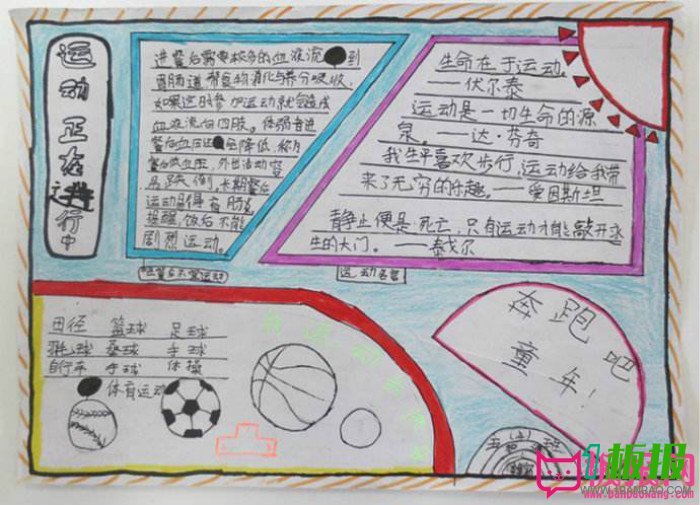 运动正在进行中
进餐后需要较多的血液流到
胃肠道,帮食物消化与养分吸收,
如果这时参加运动就会造成
血液流向四肢。体弱者进
餐后血
会降低,称为
餐后低血压,外出活动容
易跌倒,长期餐后
运动
提醒,饭后不能
剧烈运动。
生命在于运动。
——伏尔泰
运动是一切生命的源
泉。——达·芬奇
我生平喜欢步行,运动给我带
来了无穷的乐趣。——爱因斯坦
静止便是死亡,只有运动才能敲开永
生的大门。——泰戈尔
进餐后不宜运动
运动名言
田径 篮球 足球
羽毛球 垒球 手球
自行车 手球 体操
体育运动
奔跑吧
童年!
板报网
WWW.1BANBAO.COM
www.banbaowang.com